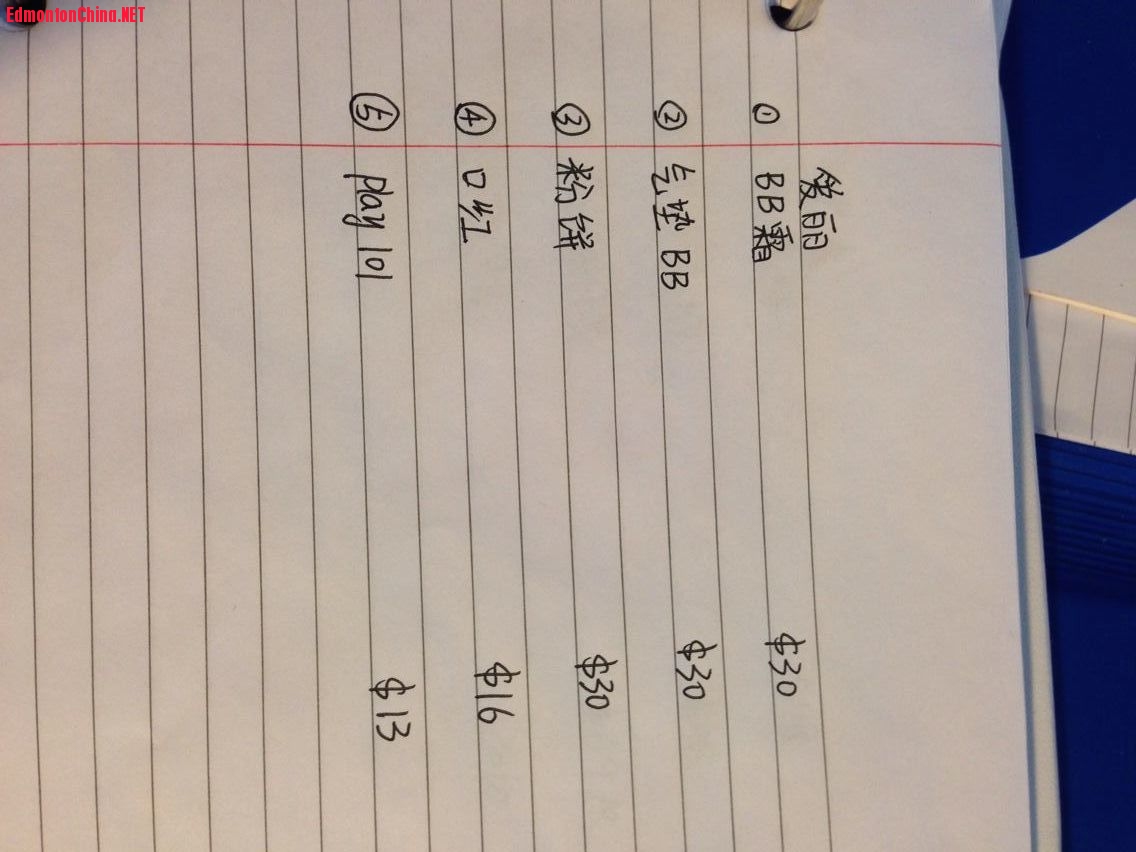 EdmontonChina.NET
爱丽
① BB霜 $30
② 气垫 BB $30
③ 粉饼 $30
④ 口红 $16
⑤ play 101 $13